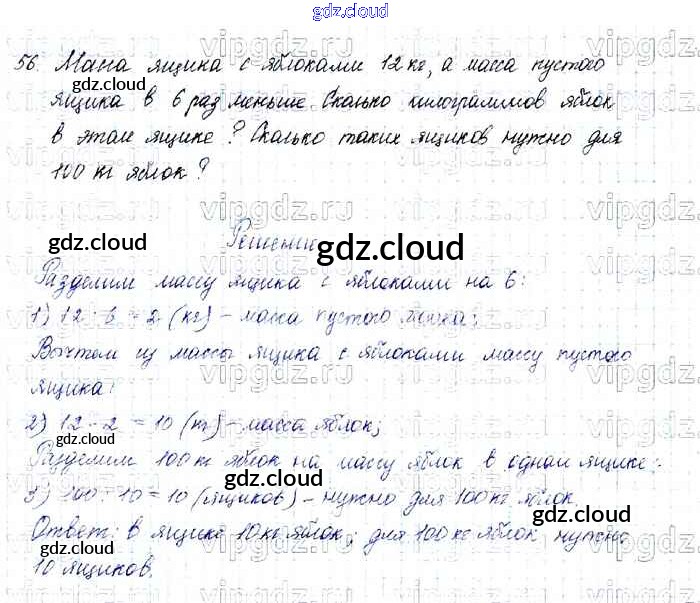 gdz.cloud
56. Масса ящика с яблоками 12 кг, а масса пустого
gdz.cloud
ящика в 6 раз меньше. Сколько килограммов яблок
в этом ящике? Сколько таких ящиков нужно для
100 кг яблок?
Решение
gdz.cloud
gdz.cloud
Разделим массу ящика с яблоками на 6:
1) 12 : 6 = 2 (кг) - масса пустого ящика;
Вычтем из массы ящика с яблоками массу пустого
ящика:
2) 12 - 2 = 10 (кг) - масса яблок;
gdz.cloud
Разделим 100 кг яблок на массу яблок в одном ящике:
3) 100 : 10 = 10 (ящиков) - нужно для 100 кг яблок.
gdz.cloud
Ответ: в ящике 10 кг яблок; для 100 кг яблок нужно
gdz.cloud
10 ящиков.
gdz.cloud
vipgdz.ru